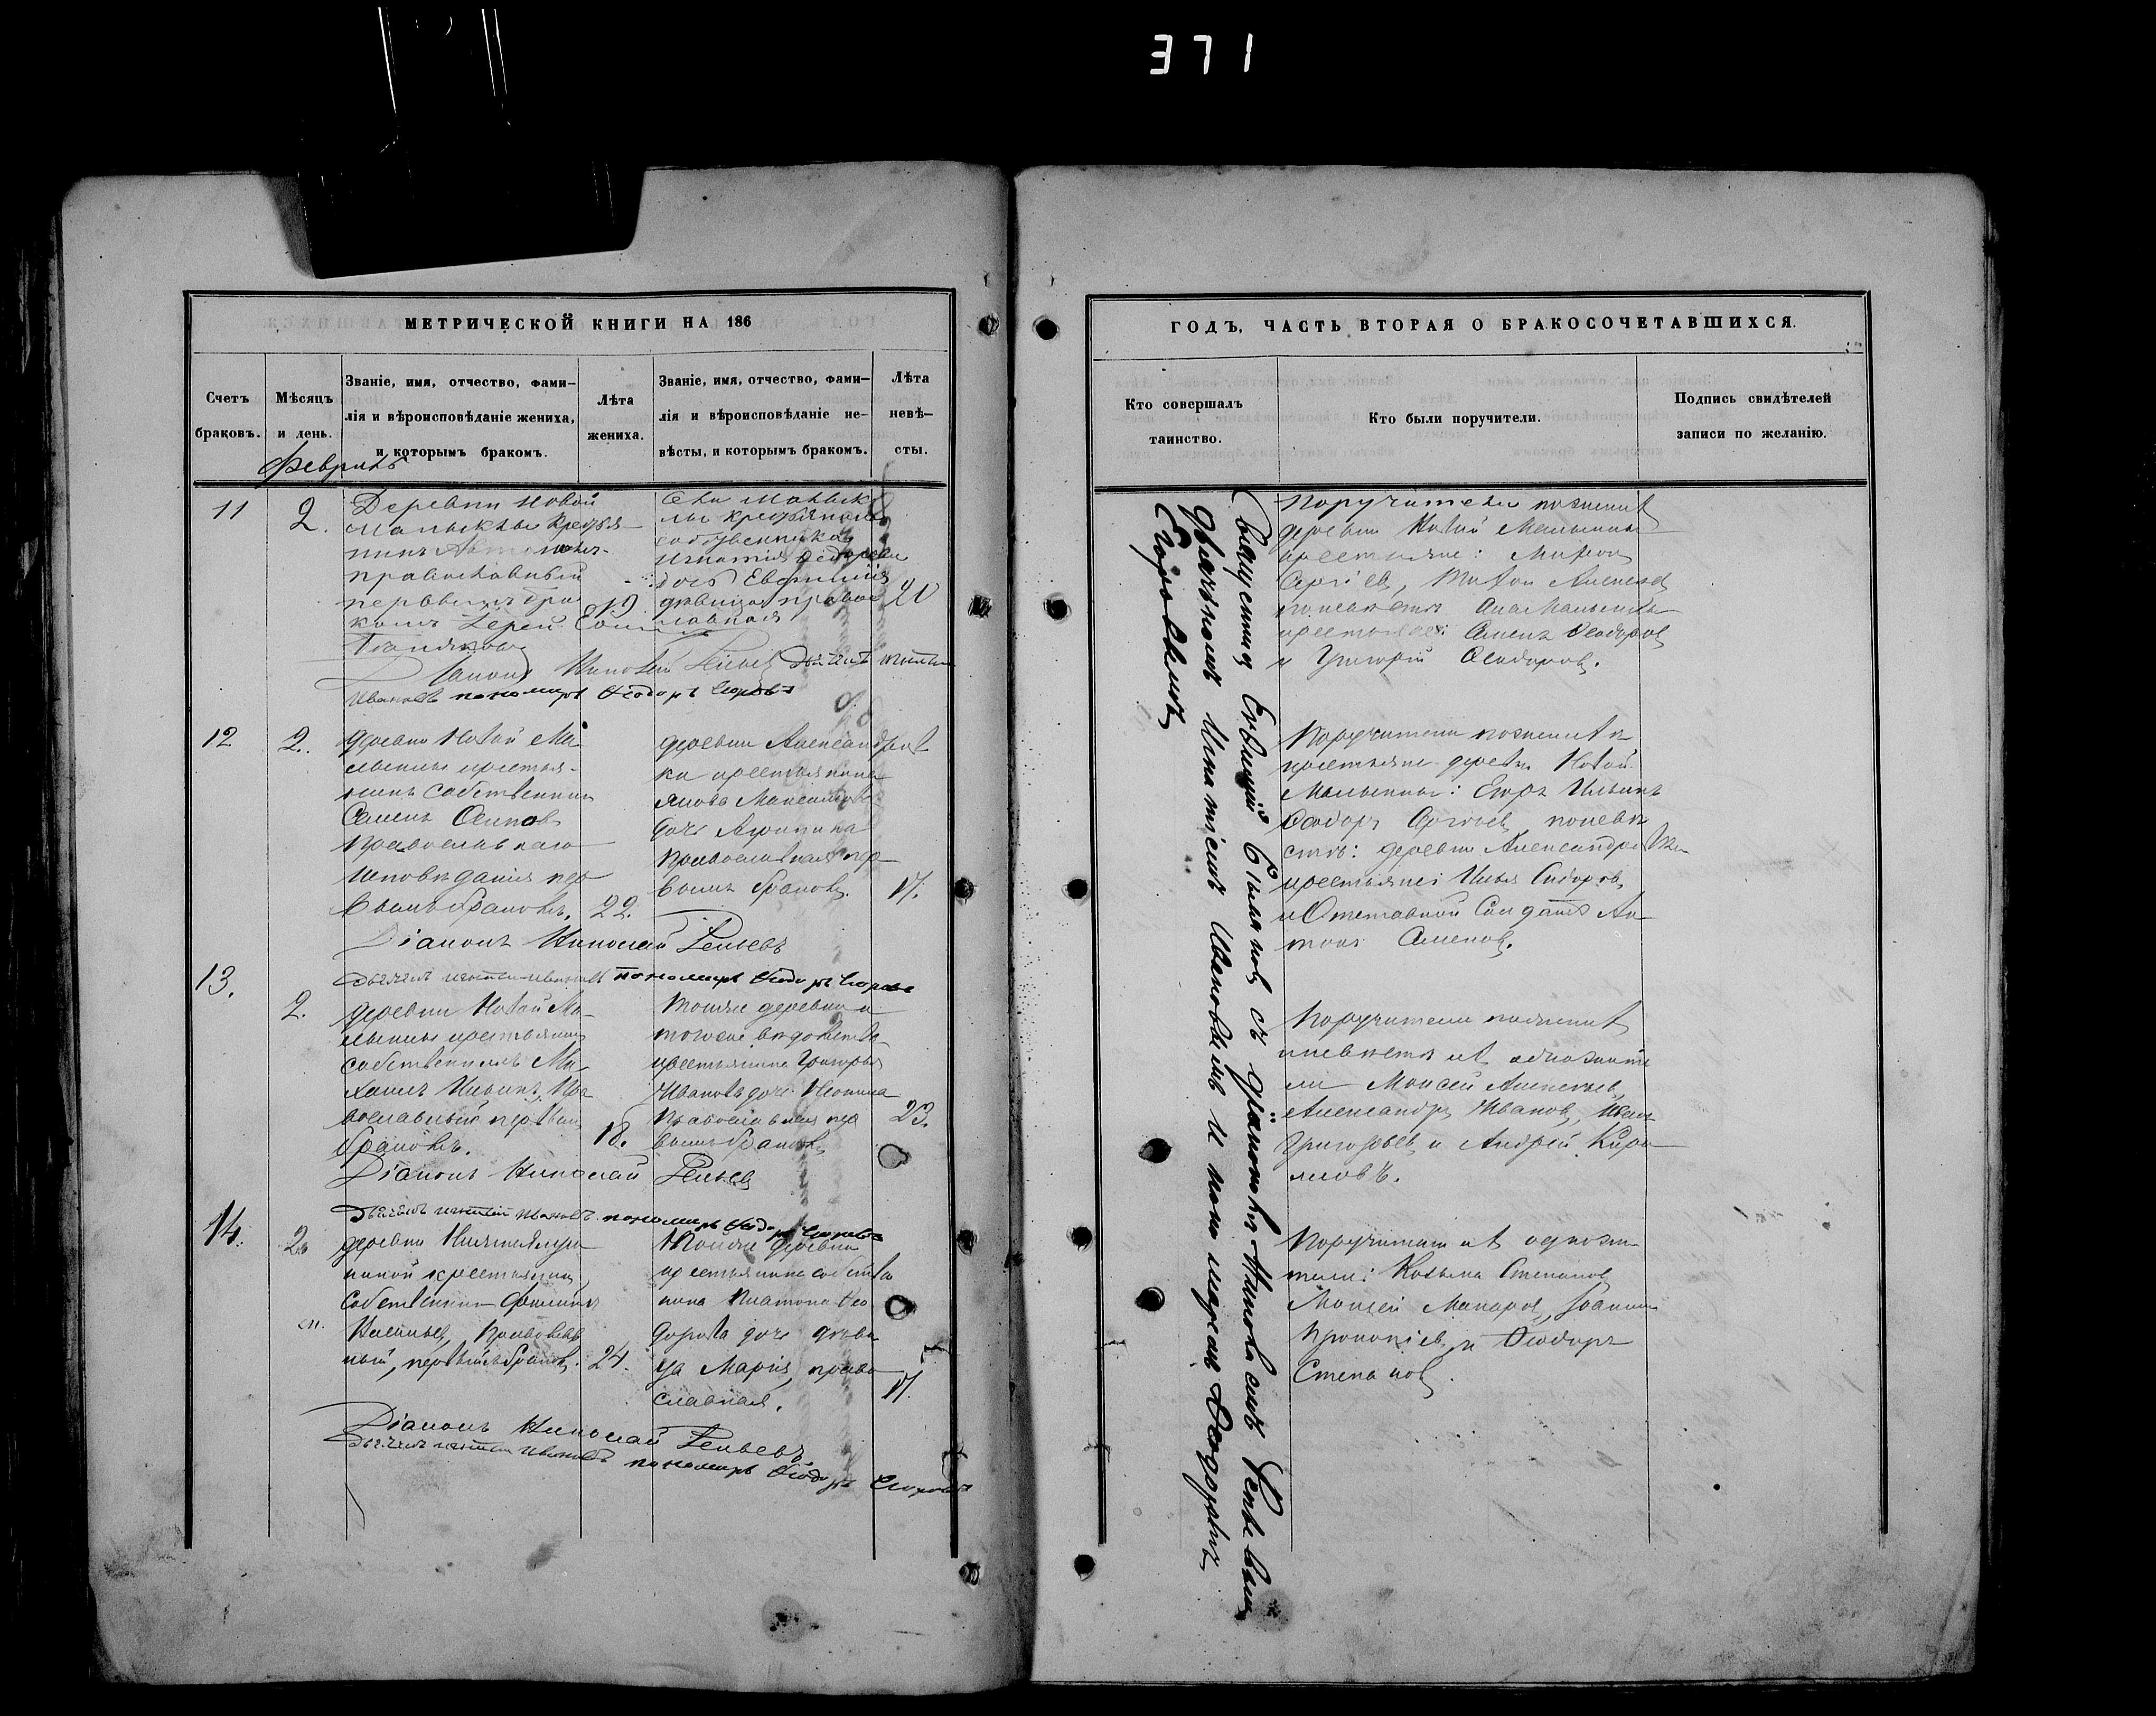 371
МЕТРИЧЕСКОЙ КНИГИ НА 186
Счетъ браковъ.
Мѣсяцъ и день.
Званіе, имя, отчество, фами-
лія и вѣроисповѣданіе жениха,
и которымъ бракомъ.
Лѣта жениха.
Званіе, имя, отчество, фами-
лія и вѣроисповѣданіе не-
вѣсты, и которымъ бракомъ.
Лѣта
невѣ-
сты.
Февраль
11
2.
Деревни Новой
Малыклы крестья-
нинъ
православный
первымъ бра
комъ
19
Села Малык
лы крестьянина
собственника
Игнатія Ѳедорова
дочь Евфимія
дѣвица право
славная
20
Діаконъ Николай Реньевъ
Ивановъ пономарь Ѳеодоръ Егоровъ
12
2.
деревни Новой Ма-
лыклы крестья-
нинъ собственникъ
Семенъ Осиповъ
православнаго
исповѣданія пер-
вымъ бракомъ.
22.
деревни Александров
ки крестьянина
Якова Максимова
дочь Акулина
православная пер-
вымъ бракомъ.
17.
Діаконъ Николай Реньевъ
дьячекъ Игнатій Ивановъ пономарь Ѳеодоръ Егоровъ
13.
2.
деревни Новой Ма-
лыклы крестьянинъ
собственникъ Ми-
хаилъ Ильинъ, Пра
вославный первымъ
бракомъ.
18.
Тойже деревни и
тогоже вѣдомства
крестьянина Григорья
Иванова дочь
православная пер
вымъ бракомъ
23.
Діаконъ Николай Реньевъ
дьячекъ Игнатій Ивановъ пономарь Ѳеодоръ Егоровъ
14.
2.
деревни
крестьянинъ,
собственникъ
Васильевъ, Православ
ный, первымъ бракомъ.
24.
Тойже деревни
крестьянина собстве
ника Платона Ѳео
дорова дочь дѣви
ца Марія, право
славная.
17.
Діаконъ Николай Реньевъ.
дьячекъ Игнатій Ивановъ пономарь Ѳеодоръ Егоровъ
ГОДЪ, ЧАСТЬ ВТОРАЯ О БРАКОСОЧЕТАВШИХСЯ.
Кто совершалъ
таинство.
Кто были поручители.
Подпись свидѣтелей
записи по желанію.
Священникъ Евфимій съ діакономъ Николаемъ Реньевымъ
дьячкомъ Игнатіемъ Ивановымъ и пономаремъ Ѳеодоромъ
Егоровымъ
Поручители по женихѣ
деревни Новой Малыклы
крестьяне: Миронъ
Сергѣевъ, Алексѣевъ
по невѣстѣ села Малыклы
крестьяне: Семенъ Ѳеодоровъ
и Григорій Ѳеодоровъ.
Поручители по женихѣ
крестьяне деревни Новой
Малыклы: Егоръ Ильинъ
Ѳеодоръ Сергѣевъ, по невѣ
стѣ: деревни Александровки
крестьяне: Илья Сидоровъ,
и Отставной Солдатъ Ан-
тонъ Семеновъ.
Поручители по женихѣ
и невѣстѣ
Моисей Алексѣевъ,
Александръ Ивановъ, Иванъ
Григорьевъ и Андрей Кири
ловъ.
Поручители
Козьма Степановъ
Моисей Макаровъ, Іоаннъ
Прокопіевъ, и Ѳеодоръ
Степановъ.